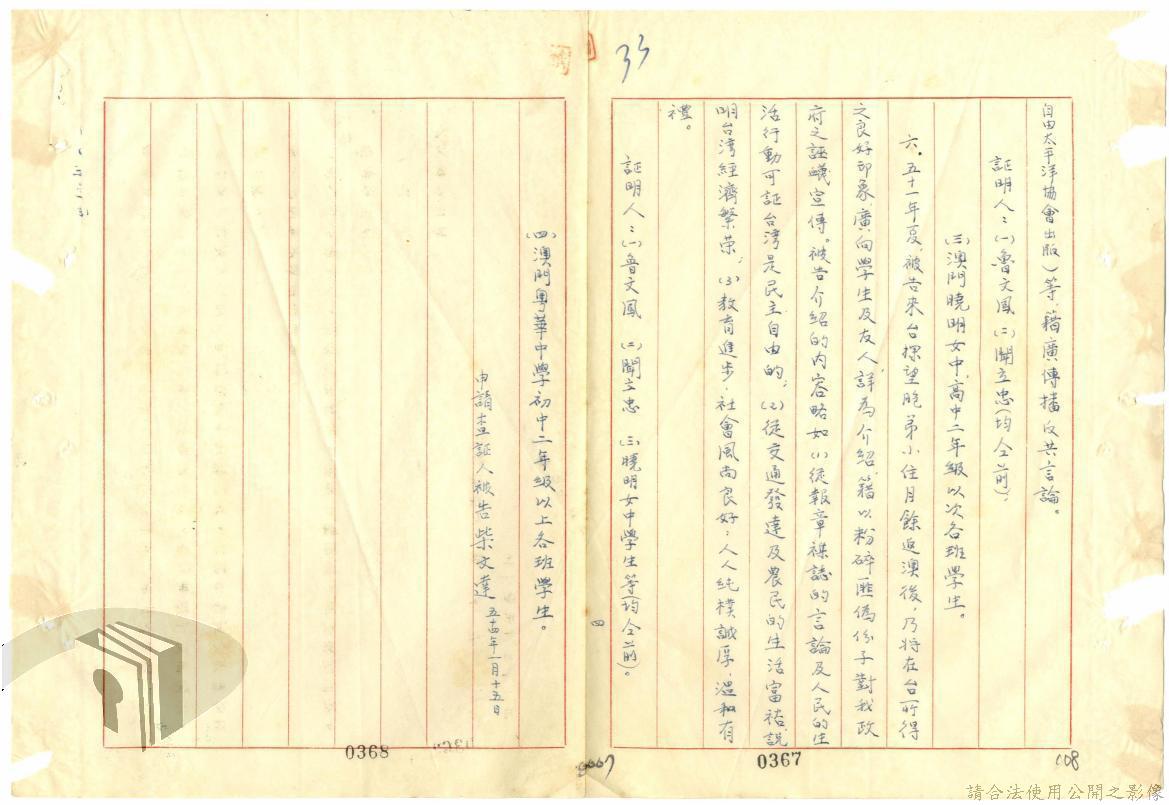 33
自由太平洋協會出版）等，籍廣傳播反共言論。
証明人：㈠魯文鳳 ㈡聞立忠（均仝前）、
㈢澳門曉明女中，高中二年級以次各班學生。
六．五十一年夏，被告來台探望胞弟小住月餘返澳後，乃將在台所得
之良好印象，廣向學生及友人，詳為介紹，籍以粉碎匪偽份子對我政
府之誣衊宣傳。被告介紹的內容略如(1)從報章襍誌的言論及人民的生
活行動可証台湾是民主自由的，(2)從交通發達及農民的生活富裕，說
明台湾經濟繁荣，(3)教育進步，社會風尚良好：人人純樸誠厚，溫和有
禮。
証明人：㈠魯文鳳 ㈡聞立忠 ㈢曉明女中學生等（均仝前）。
四
㈣澳門粵華中學初中二年級以上各班學生。
申請查証人被告柴文達 五十四年一月十五日
0368
0367
108
請合法使用公開之影像